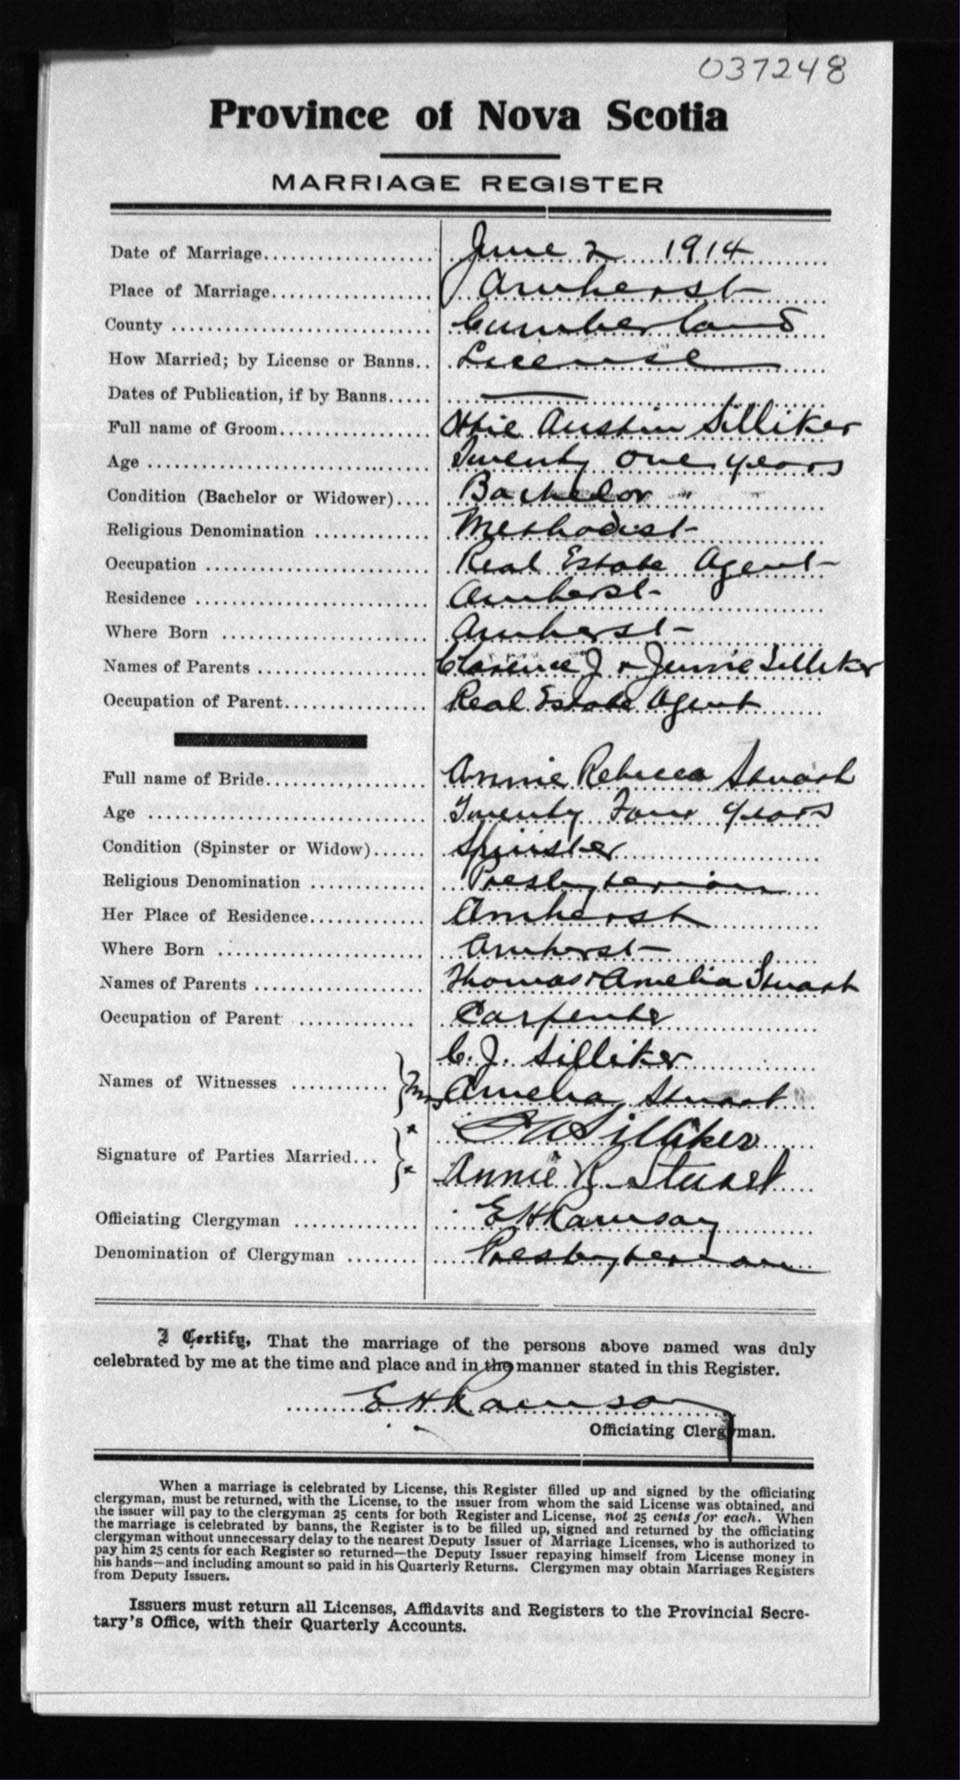 037248
Province of Nova Scotia
MARRIAGE REGISTER
Date of Marriage.................... June 2 1914
Place of Marriage................... Amherst
County ............................. Cumberland
How Married; by License or Banns.. License
Dates of Publication, if by Banns..... —
Full name of Groom.................. Austin Silliker
Age ................................ Twenty one years
Condition (Bachelor or Widower).... Bachelor
Religious Denomination ............. Methodist
Occupation ......................... Real Estate Agent
Residence .......................... Amherst
Where Born ......................... Amherst
Names of Parents ................... Clarence J & Jennie Silliker
Occupation of Parent................ Real Estate Agent
Full name of Bride.................. Annie Rebecca Stuart
Age ................................ Twenty Four years
Condition (Spinster or Widow)...... Spinster
Religious Denomination ............. Presbyterian
Her Place of Residence............. Amherst
Where Born ......................... Amherst
Names of Parents ................... Thomas & Amelia Stuart
Occupation of Parent ............. Carpenter
C. J. Silliker
Names of Witnesses ........... Mrs Amelia Stuart
Silliker
Signature of Parties Married...
Annie R. Stuart
Officiating Clergyman ............. E H Ramsay
Denomination of Clergyman ........ Presbyterian
I Certify, That the marriage of the persons above named was duly
celebrated by me at the time and place and in the manner stated in this Register.
E H Ramsay
Officiating Clergyman.
When a marriage is celebrated by License, this Register filled up and signed by the officiating
clergyman, must be returned, with the License, to the issuer from whom the said License was obtained, and
the issuer will pay to the clergyman 25 cents for both Register and License, not 25 cents for each. When
the marriage is celebrated by banns, the Register is to be filled up, signed and returned by the officiating
clergyman without unnecessary delay to the nearest Deputy Issuer of Marriage Licenses, who is authorized to
pay him 25 cents for each Register so returned—the Deputy Issuer repaying himself from License money in
his hands—and including amount so paid in his Quarterly Returns. Clergymen may obtain Marriages Registers
from Deputy Issuers.
Issuers must return all Licenses, Affidavits and Registers to the Provincial Secre-
tary's Office, with their Quarterly Accounts.